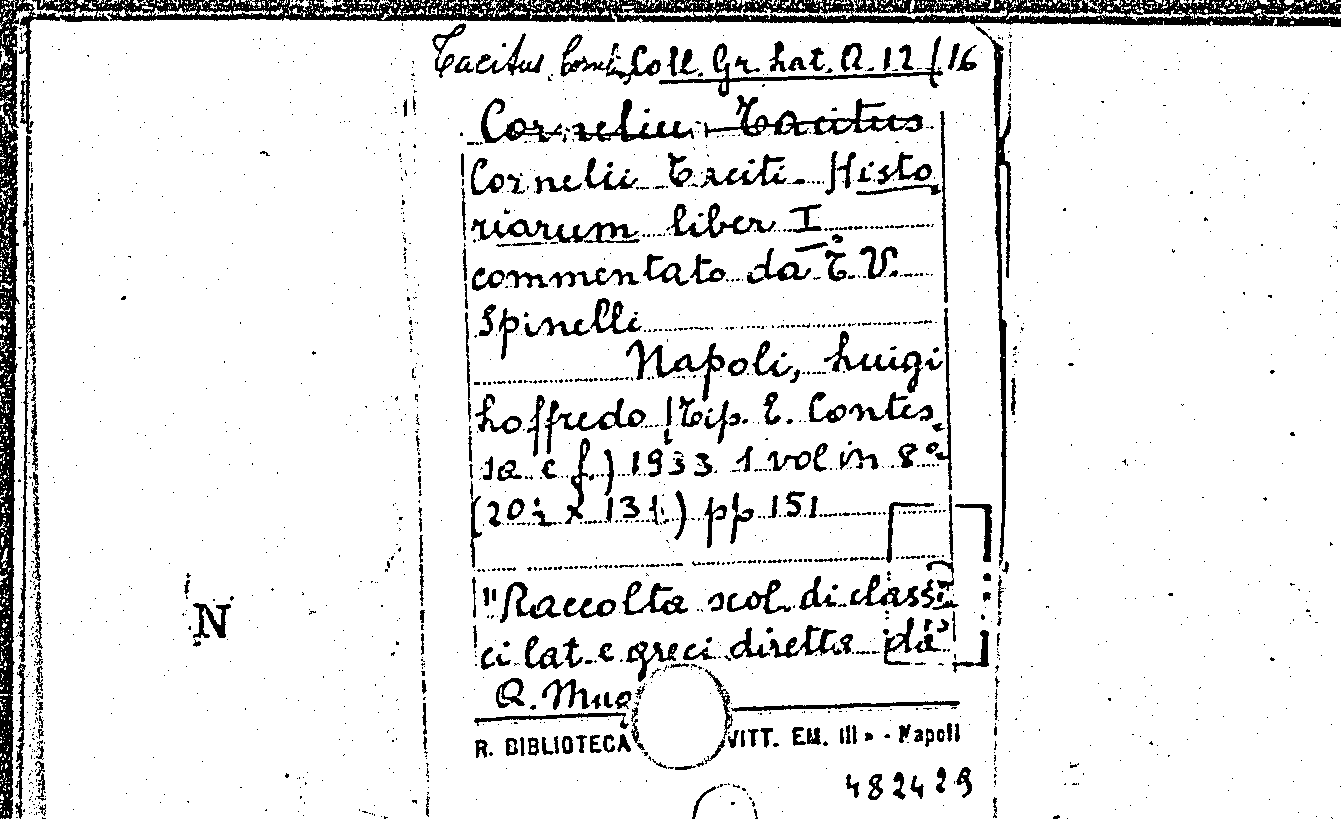 Tacitus, Coll. Gr. Lat. Q. 12 (16
Cornelius Tacitus
Cornelii Taciti. Histo
riarum liber I
commentato da T. V.
Spinelli
Napoli, Luigi
Loffredo (Tip. E. Contes
sa e f.) 1933 1 vol in 8º
(20½ x 13½) pp 151
"Raccolta scol. di classi
ci lat. e greci diretta da
N
Q.
R. BIBLIOTECA VITT. EM. III» - Napoli
482429